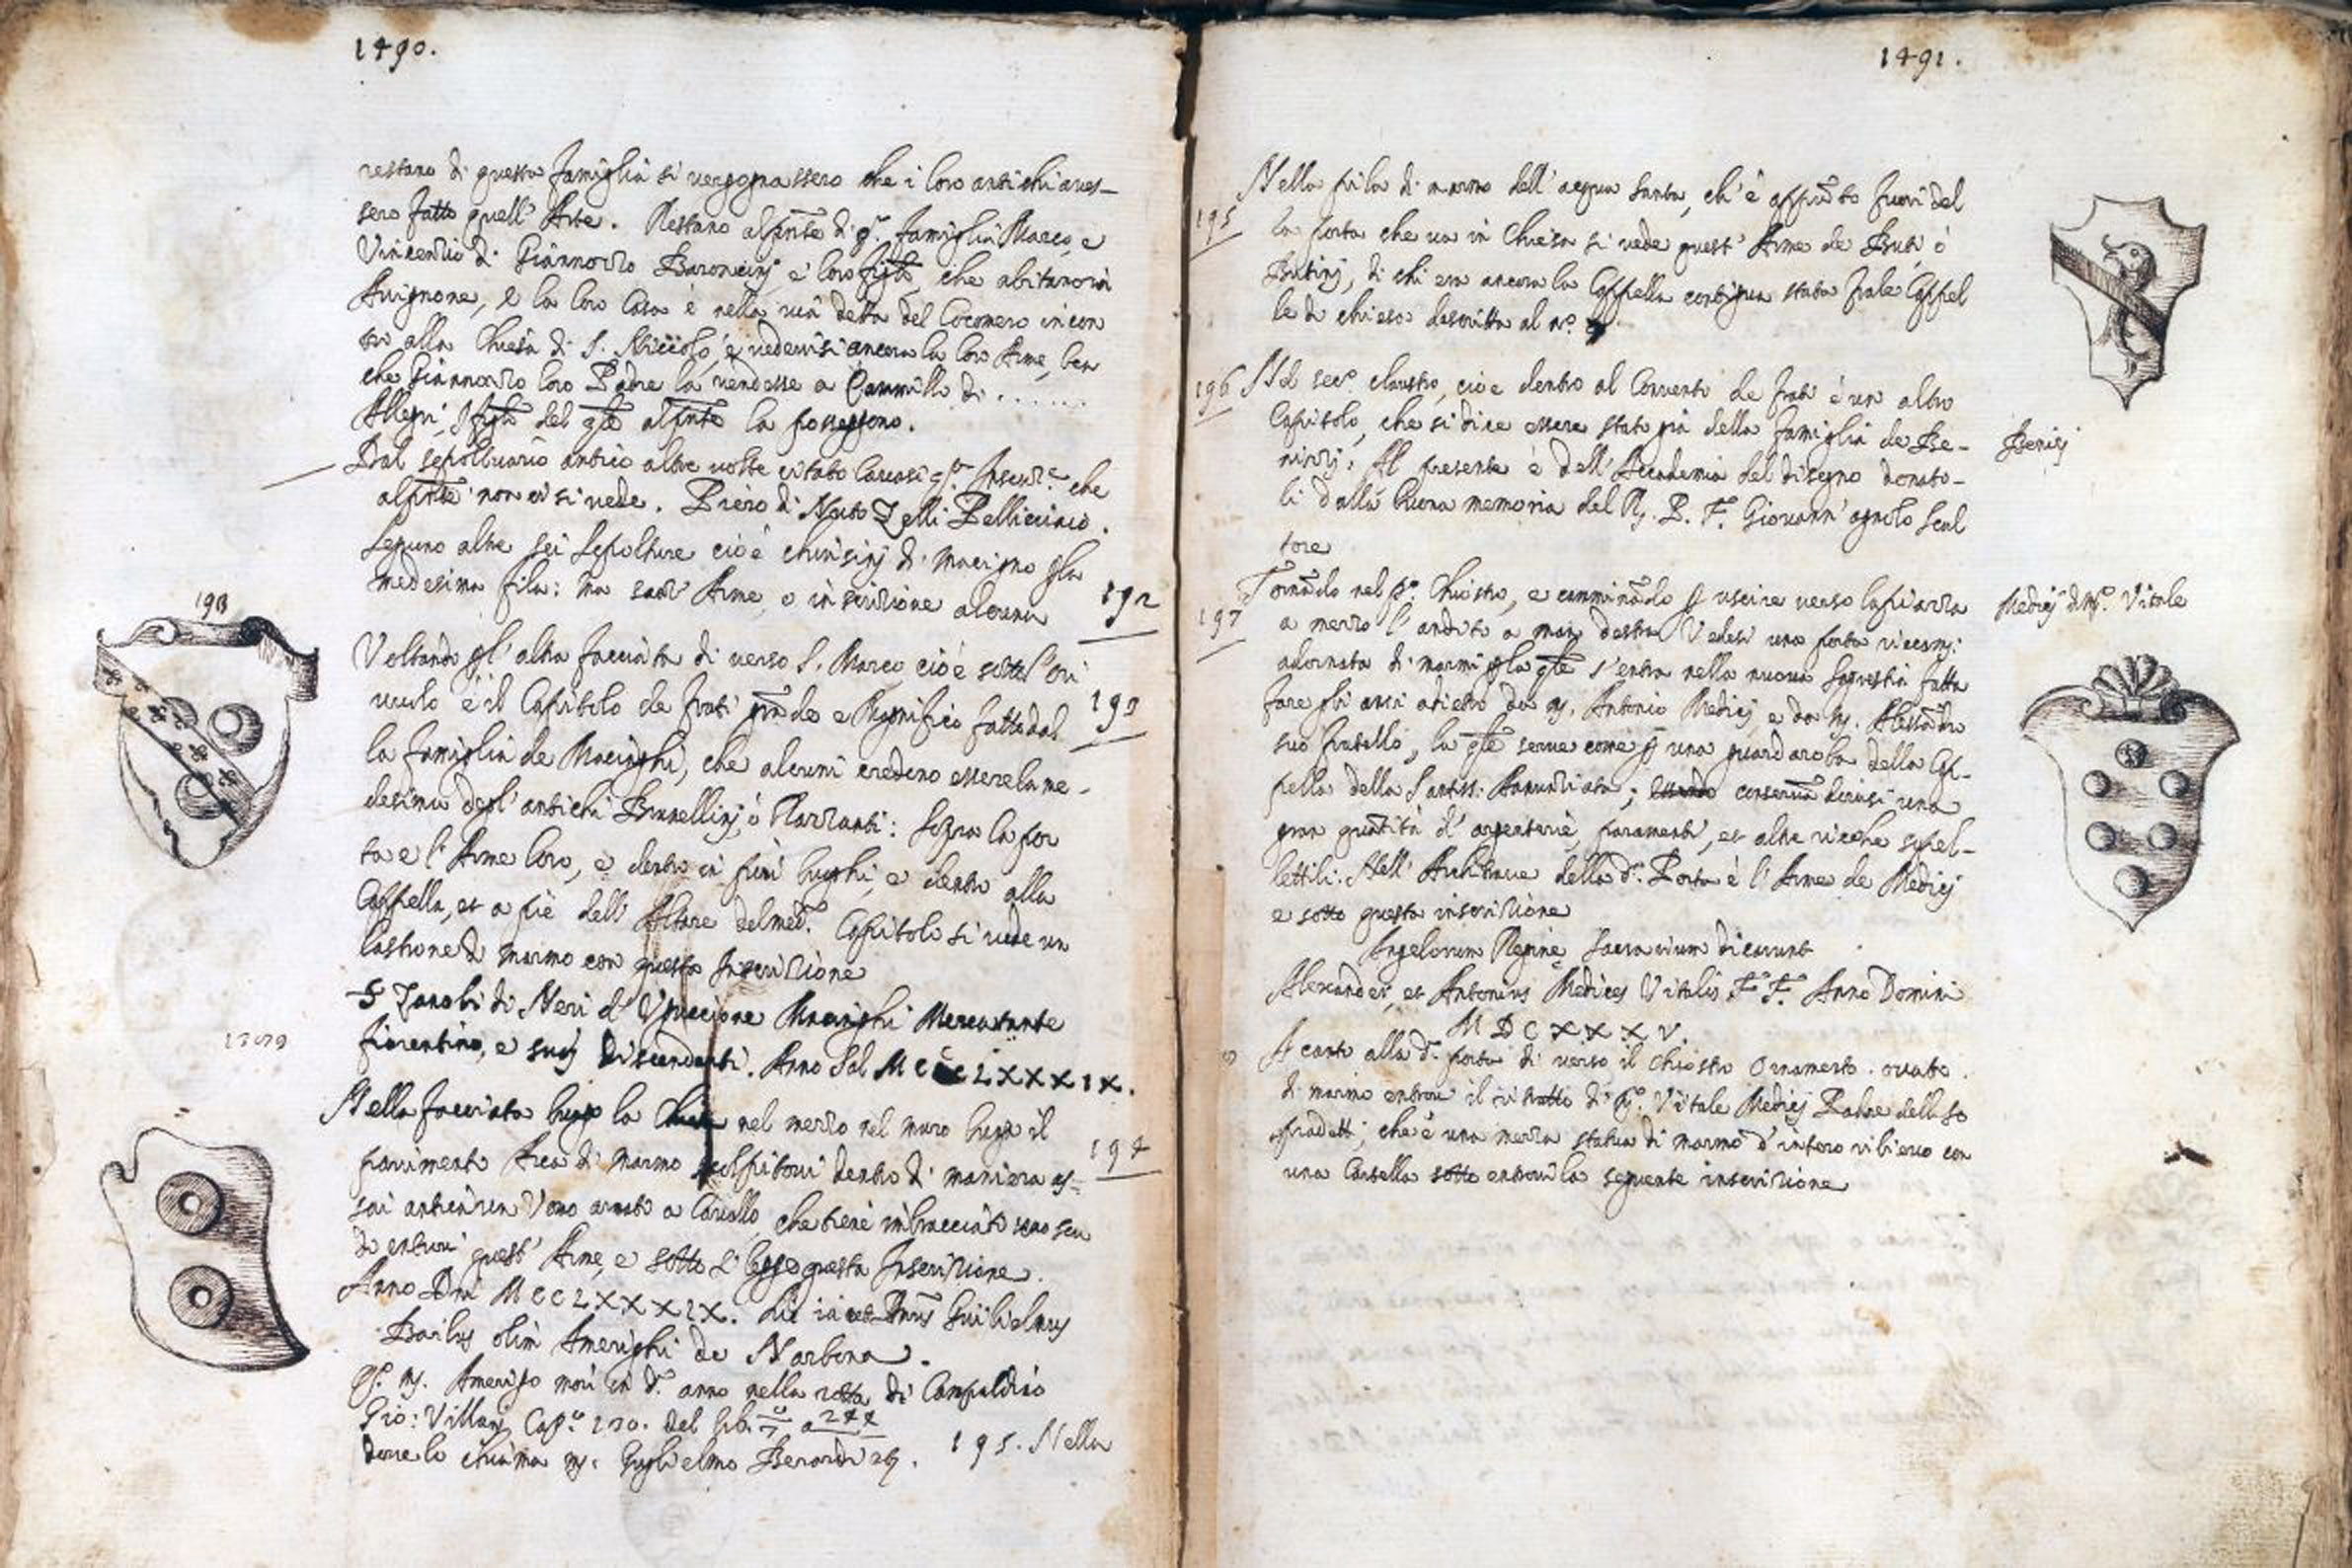 1490.
restano di questa famiglia si vergognassero che i loro antichi aves-
sero fatto quell' Arte. Restano alpnte di q.a famiglia Marco, e
Vincentio di Giannozzo Baroncinj e loro figli, che abitano in
Avignone, e la loro Casa è nella via detta del Cocomero incon
tro alla Chiesa di S. Niccolò, e vedevisi ancora la loro Arme, ben
che Giannozzo loro Padre la vendesse a Cammillo di . . . . . .
Allegri, i figli del qle alpnte la posseggono.
Dal sepoltuario antico altre volte citato cavasi q.a Inscritt.e che
alpnte non vi si vede. Piero di Nuto Telli Pellicciaio.
Seguno altre sei sepolture cioè chiusinj di macigno pla
medesima fila: ma senz' Arme, o inscrizione alcuna
192
193
Voltando pl' altra facciata di verso S. Marco cioè sotto l'ori
uolo è il Capitolo de frati grande e Magnifico fatto dal
193
la famiglia de Macinghi, che alcuni credono essere la me-
desima degl' antichi Brunellinj, ò Razzanti: Sopra la por
ta e l' Arme loro, e dentro in più luoghi, e dentro alla
Cappella, et a piè dell' Altare del med.o Capitolo si vede un
lastrone di marmo con questa Inscrizione
S Zanobi di Neri d' Uguccione Macinghi Mercatante
fiorentino, e suoj discendenti. Anno Sal M C C C C L X X X I X.
Nella facciata lungo la Chiesa nel mezzo nel muro lungo il
194
pavimento Arca di marmo scolpitovi dentro di maniera as-
sai antica un Vomo armato a Cavallo, che tiene imbracciato uno scu
do entrovi quest' Arme, e sotto si legge questa Inscrizione.
Anno Dni M C C L X X X I X. hic iacet Dnus Guilielmus
Bailus olim Amerighi de Narbona.
q.o m. Amerigo morì in d.o anno nella rotta di Campaldino
Gio: Villani Cap.o 130. del lib. 7 a 244
dove lo chiama m. Guglielmo Berardi
195. Nella
1491.
Nella pila di marmo dell' acqua santa, ch' è appunto fuori del
195
la porta che va in Chiesa si vede quest' Arme de Buti, ò
Butinj, di chi era ancora la Cappella contigua stata frale Cappel
le di chiesa descritta al n.o
196
Nel sec.o claustro, cioè dentro al Convento de frati è un altro
Capitolo, che si dice essere stato già della famiglia de Be-
Beninj
ninzj: Al presente è dell' Accademia del disegno donato-
li dalla buona memoria del R. P. F. Giovann' agnolo scul
tore
197
Tornādo nel p.o Chiostro, e camminādo p uscire verso la piazza
Medicj di M.o Vitale
a mezzo l' andito a man destra Vedesi una porta
adornata di marmi pla qle s' entra nella nuova Sagrestia fatta
fare gli anni adietro da m. Antonio Medicj e da m. Alessādro
suo fratello, la qle serve come p una guardaroba della Cap-
pella della Santiss: Annunziata; conservādovisi una
gran quātità d' argenterie, paramenti, et altre ricche supel-
lettili. Nell' Architrave della d.a Porta è l' Arme de Medicj
e sotto questa inscrizione
Angelorum Reginę Sacrarium dicarunt
Alexander, et Antonius Medices Vitalis F F. Anno Domini
M D C X X X V.
A canto alla d.a porta di verso il Chiostro Ornamento ovato
di marmo entrovi il ritratto di M.o Vitale Medicj Padre delli so
pradetti, che è una mezza statua di marmo d' intero rilievo con
una Cartella sotto entrovi la seguente inscrizione